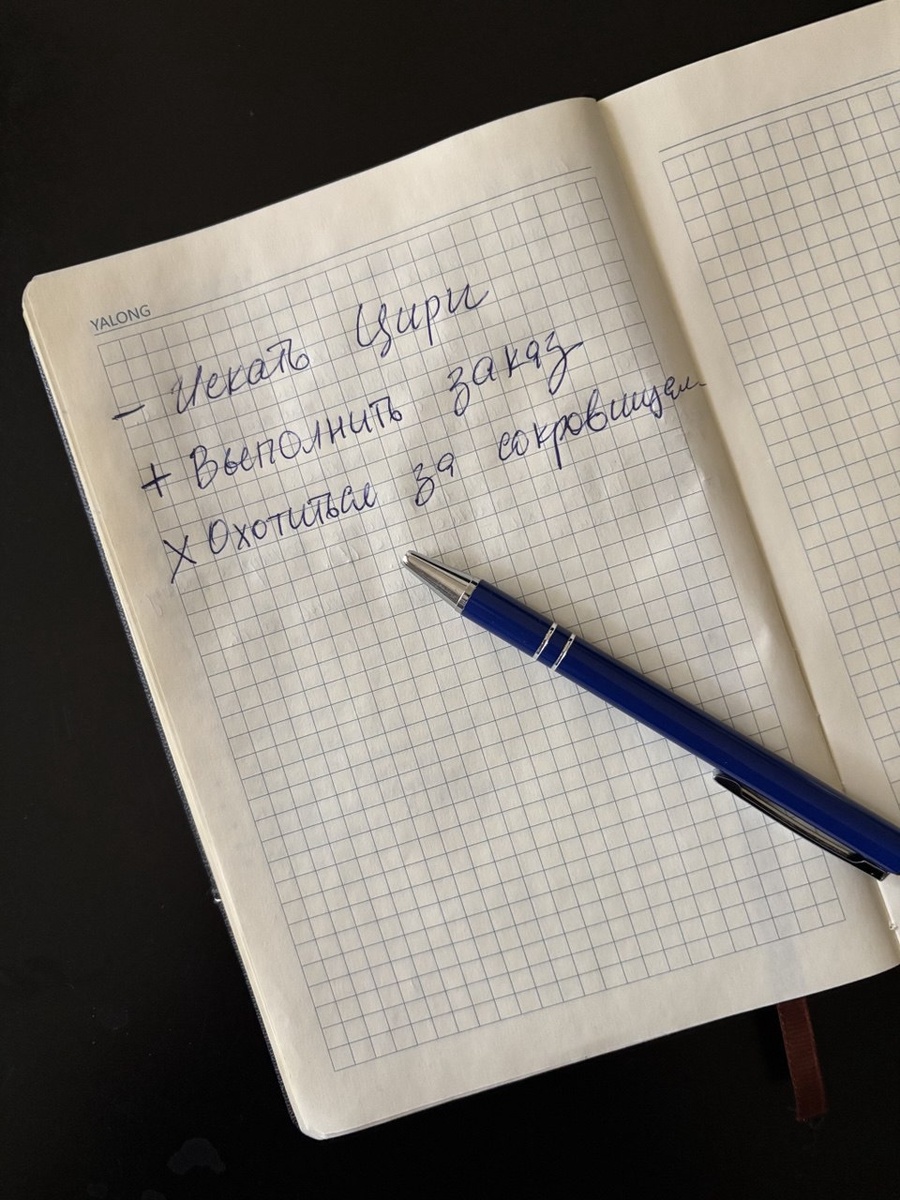 YALONG
- Искать Цири
+ Выполнить заказ
X Охотиться за сокровищем